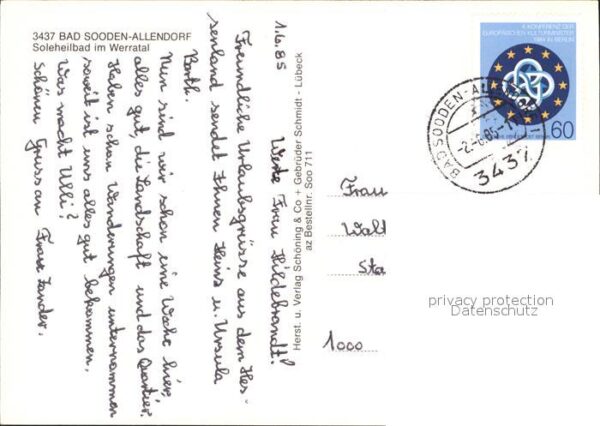 3437 BAD SOODEN-ALLENDORF
Soleheilbad im Werratal
1.6.85
Werte Frau Hildebrandt!
Freundliche Urlaubsgrüsse aus dem Hes-
senland sendet Ihnen Heinz u. Ursula
Barth.
Nun sind wir schon eine Woche hier,
alles gut, die Landschaft und das Quartier.
Haben schon Wanderungen unternommen
soweit ist uns alles gut bekommen.
Was macht Ulli?
Schönen Gruss an Frau Zander.
Herst. u. Verlag Schöning & Co + Gebrüder Schmidt - Lübeck
az Bestellnr. Soo 711
4. KONFERENZ DER
EUROPÄISCHEN KULTURMINISTER
1984 IN BERLIN
60
BAD SOODEN-ALLENDORF
-2.-6.85-
3437
Frau
Walt
Sta
1000
privacy protection
Datenschutz